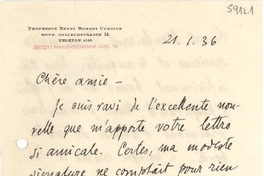 59121
PROFESSOR ERNST ROBERT CURTIUS
BONN, JOACHIMSTRASSE 18
TELEFON
JETZT: HANS-SCHEMM-STR. 18
21.1.36
Chère amie –
Je suis ravi de l'excellente nou-
velle que m'apporte votre lettre
si amicale. Certes, ma modeste
signature ne comptait pour rien